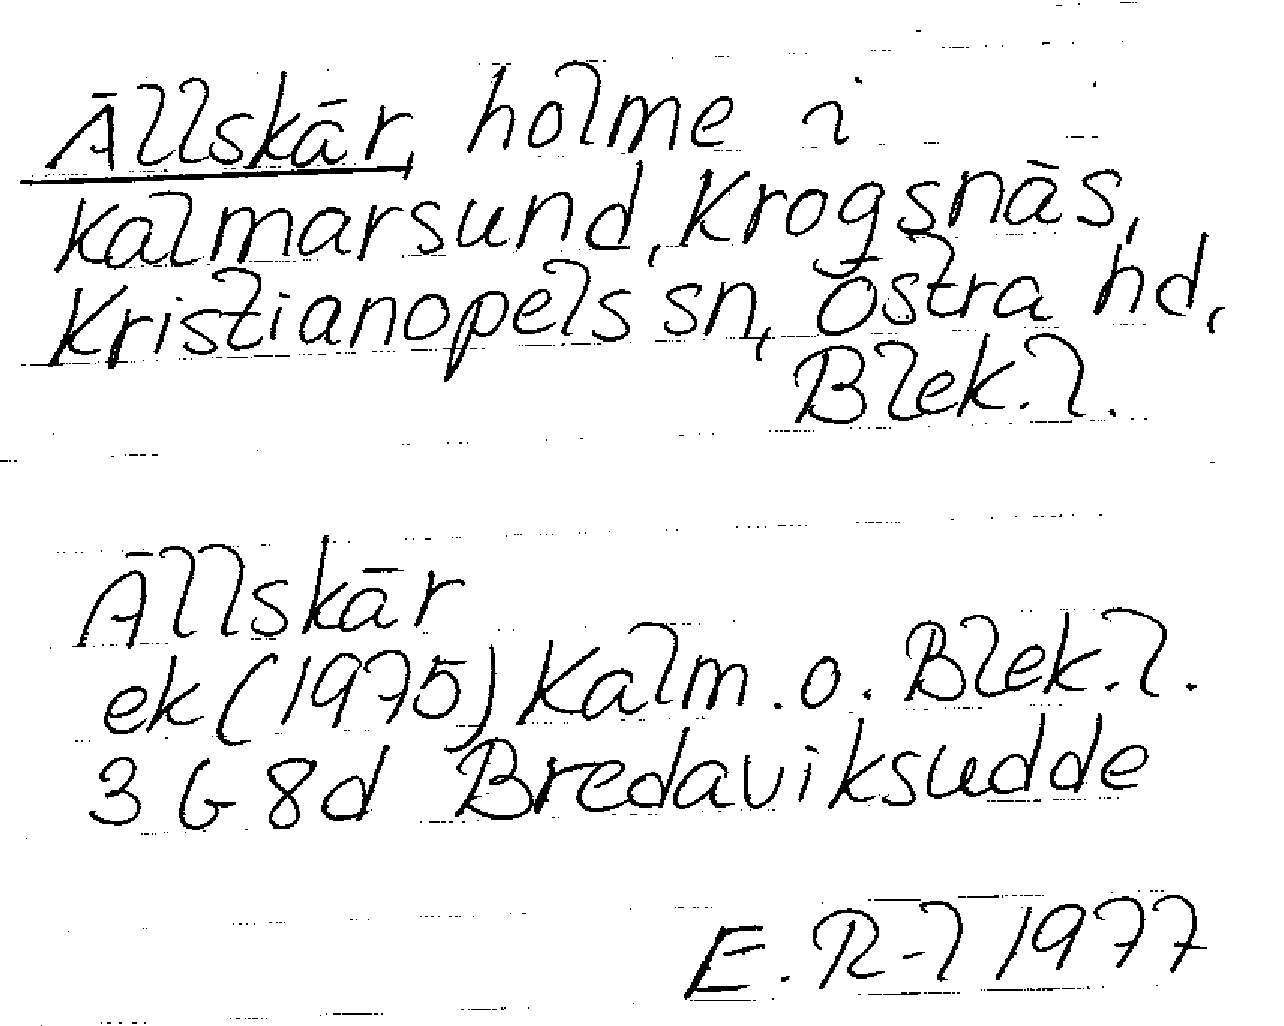 Ällskär, holme i
Kalmarsund, Krogsnäs,
Kristianopels sn, Östra hd,
Blek.l.
Ällskär
ek (1975) Kalm. o. Blek.l.
3 G 8d Bredaviksudde
E. R-l 1977